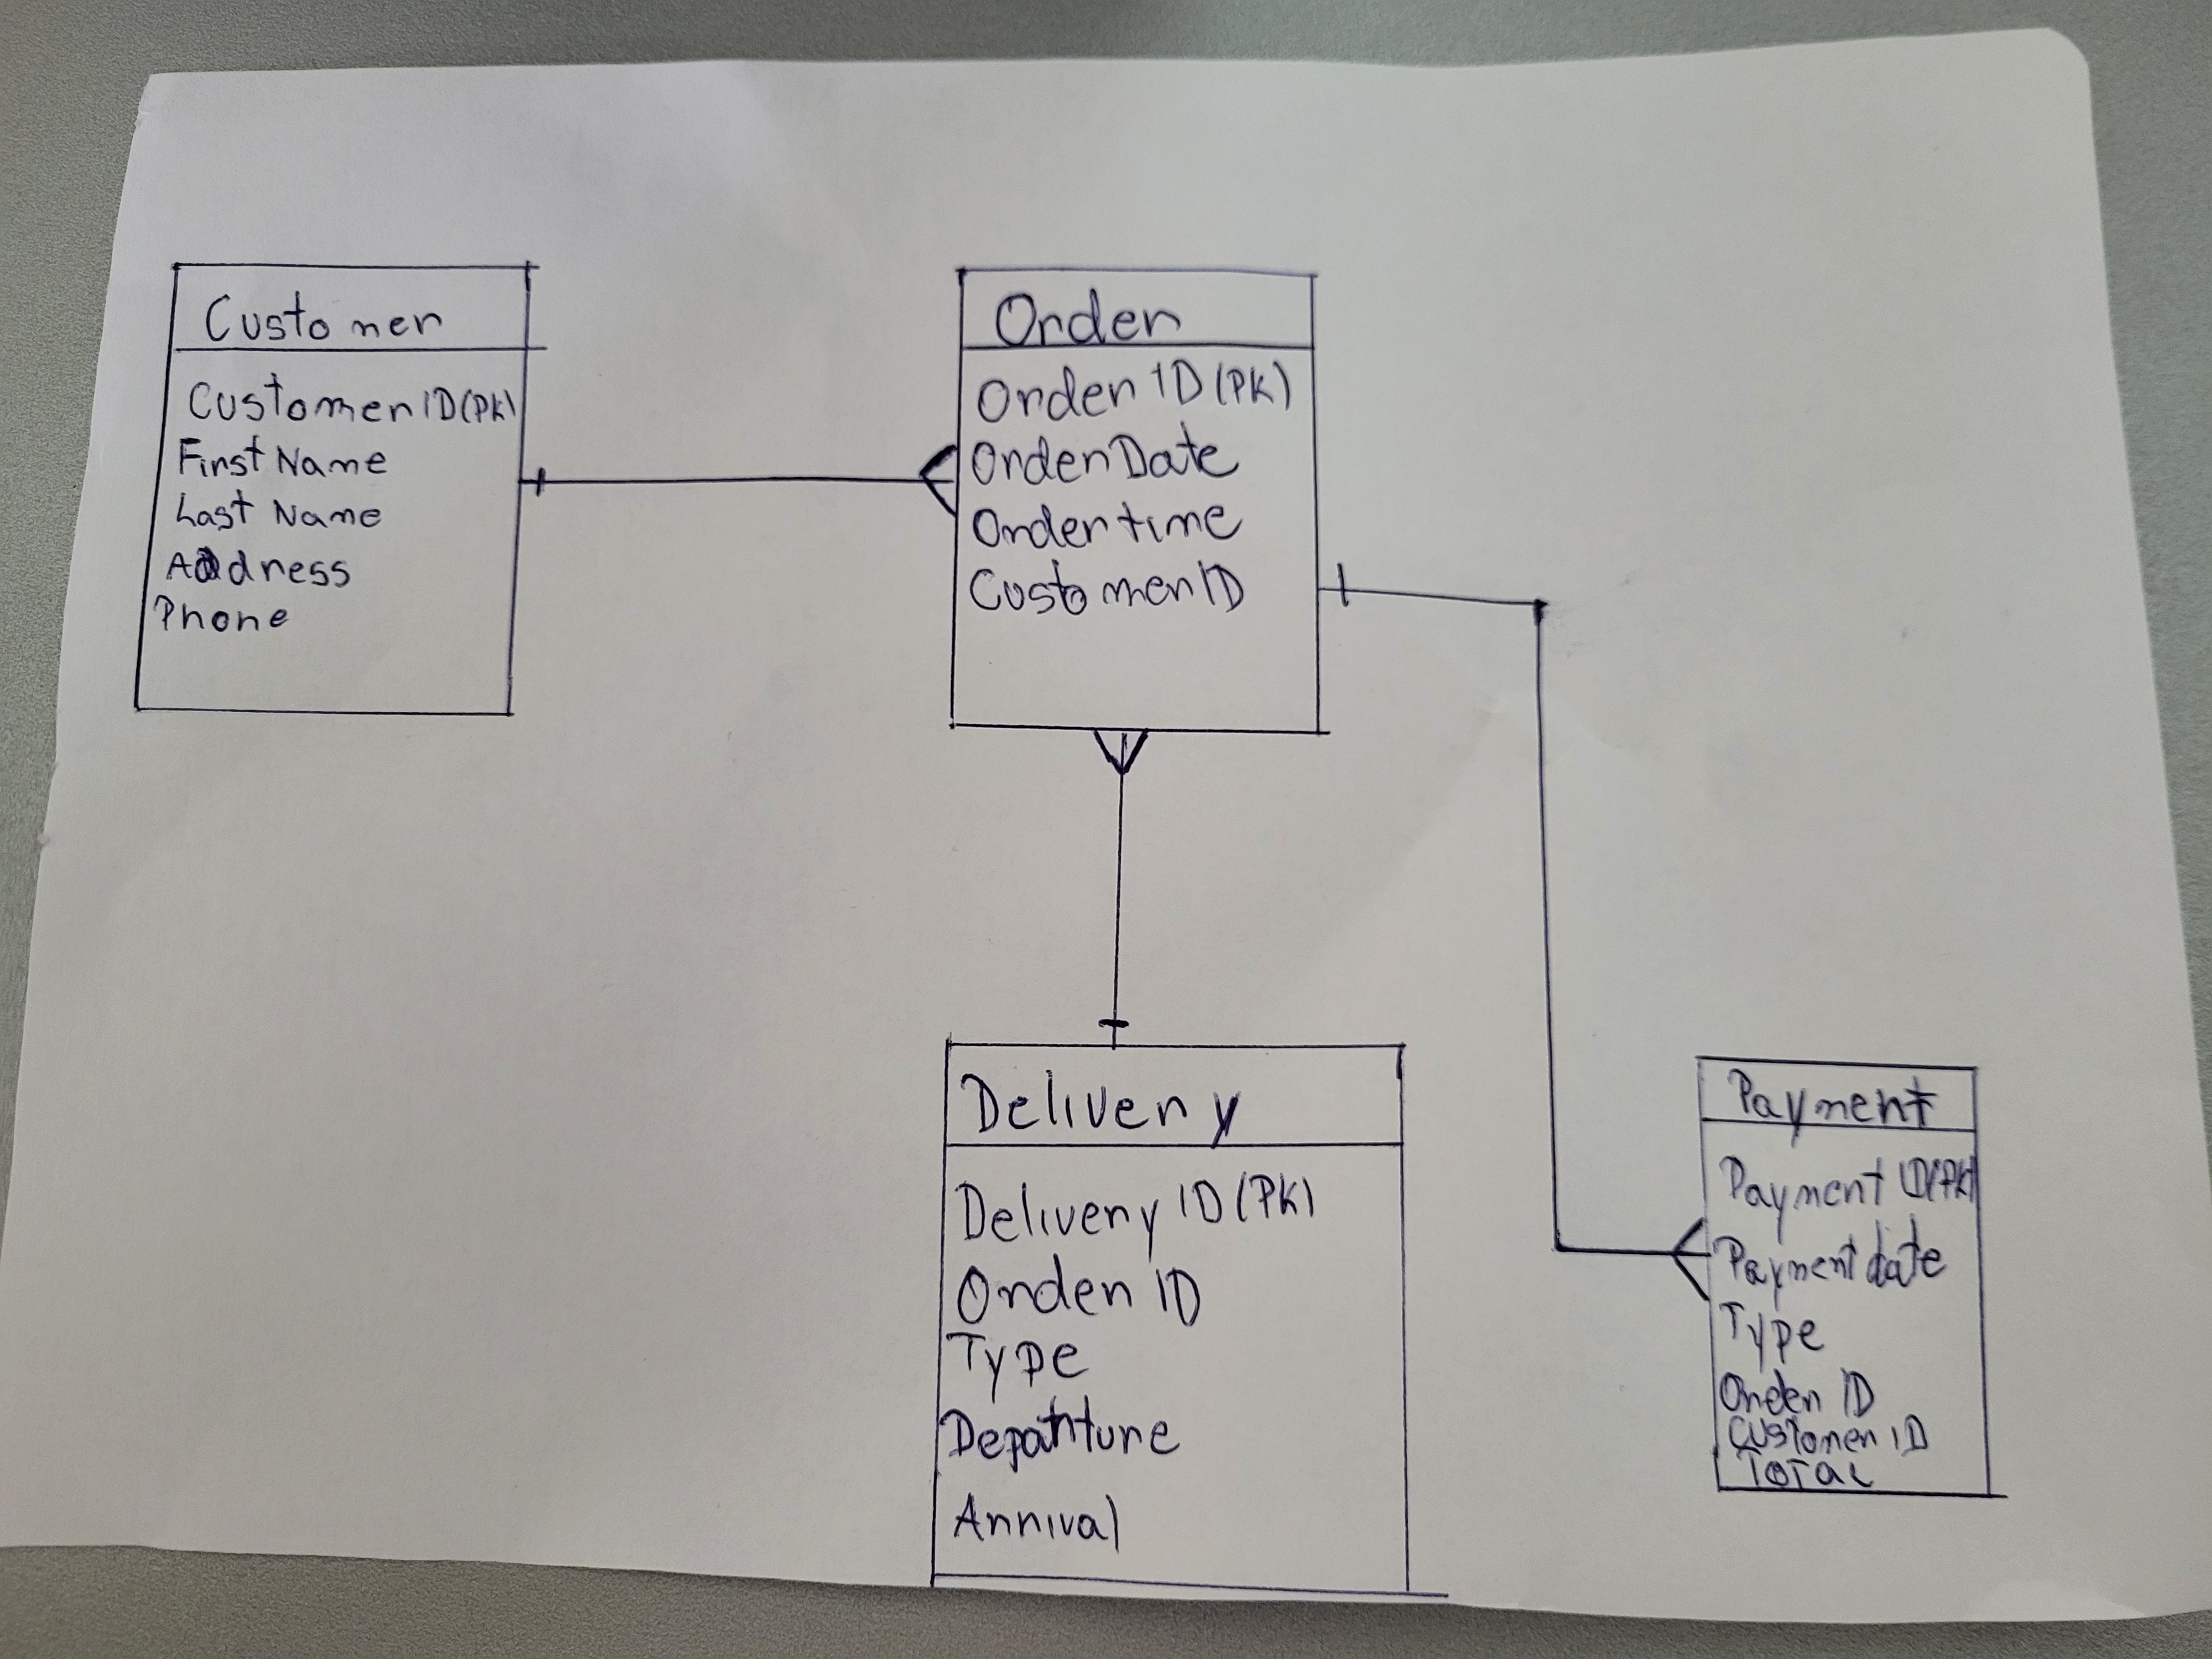 Customer
Customer ID(PK)
First Name
Last Name
Address
Phone
Order
Order ID(PK)
Order Date
Order time
Customer ID
Delivery
Delivery ID(PK)
Order ID
Type
Departure
Arrival
Payment
Payment ID(PK)
Payment date
Type
Order ID
Customer ID
Total